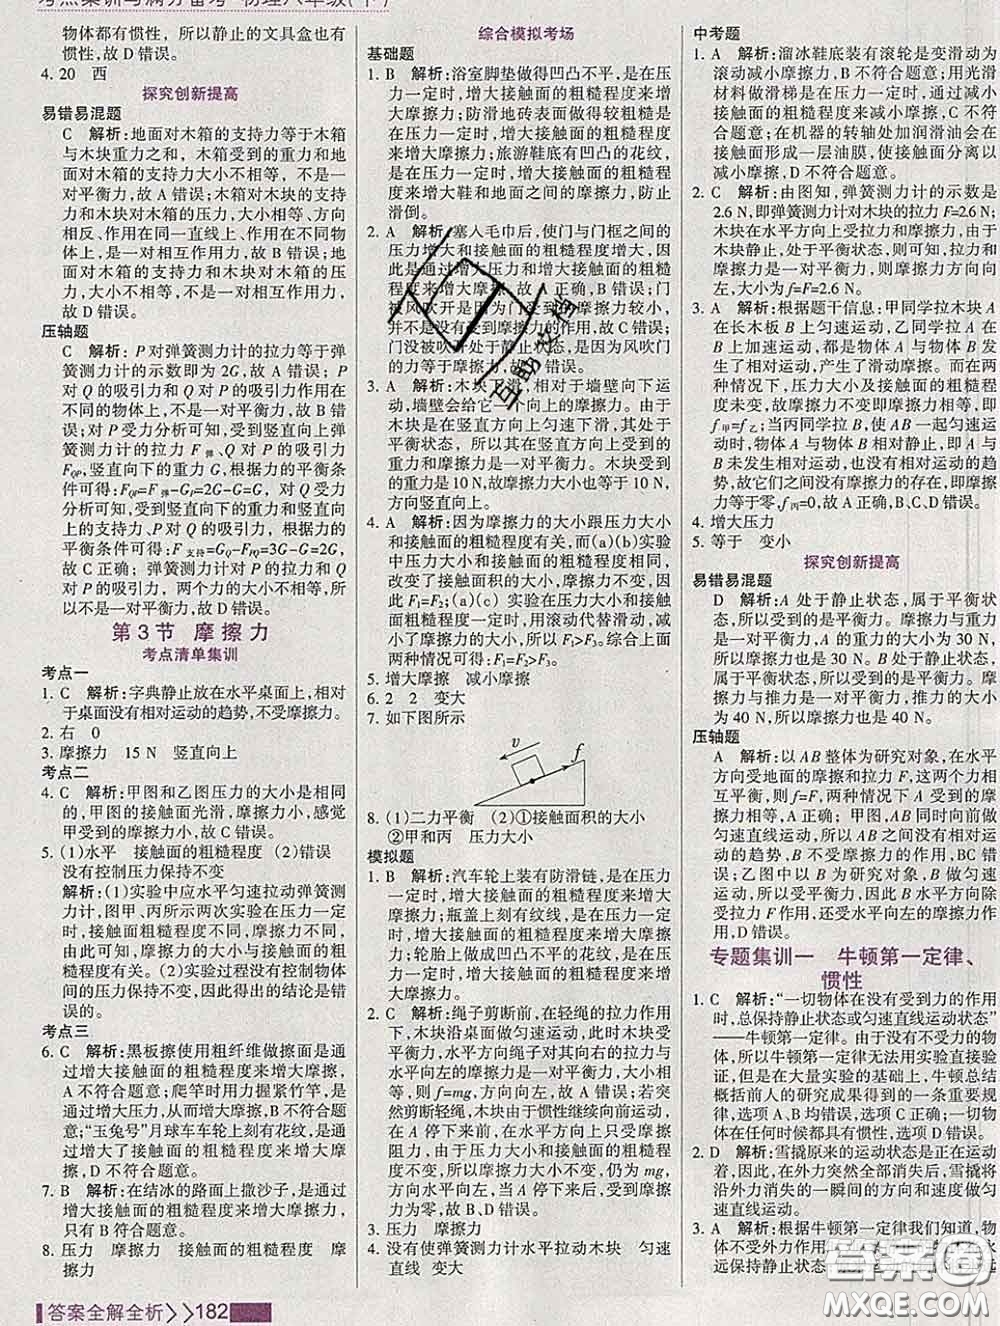 考点集训与满分备考 物理八年级(下)
物体都有惯性,所以静止的文具盒也有
惯性,故 D 错误。
4. 20 西
探究创新提高
易错易混题
C 解析:地面对木箱的支持力等于木箱
与木块重力之和,木箱受到的重力和地
面对木箱的支持力大小不相等,不是一
对平衡力,故 A 错误;木箱对木块的支持
力和木块对木箱的压力,大小相等、方向
相反、作用在同一直线上、作用在不同物
体上,是一对相互作用力,故 B 错误;地
面对木箱的支持力和木块对木箱的压
力,大小不相等,不是一对平衡力,
故 D 错误。
压轴题
C 解析:P 对弹簧测力计的拉力等于弹
簧测力计的示数即为 2G,故 A 错误;P
对 Q 的吸引力和 Q 对 P 的吸引力作用在
不同的物体上,不是一对平衡力,故 B 错
误;对 P 受力分析可知,受到竖直向上弹
簧测力计的拉力 F弹、Q 对 P 的吸引力
FQP,竖直向下的重力 G,根据力的平衡条
件可得:FQP=F弹-G=2G-G=G,对 Q 受力
分析可知,受到竖直向下的重力,竖直向上
的支持力、P 对 Q 的吸引力,根据力的平
衡条件可得:F支持=GQ-FPQ=3G-G=
2G,故 C 正确;弹簧测力计对 P 的拉力和 Q
对 P 的吸引力,两个力的大小不相等,所以
不是一对平衡力,故 D 错误。
第 3 节 摩擦力
考点清单集训
考点一
1. C 解析:字典静止放在水平桌面上,相对
于桌面没有相对运动的趋势,不受摩擦力。
2. 右 0
3. 摩擦力 15 N 竖直向上
考点二
4. C 解析:甲图和乙图压力的大小是相同
的,甲图的接触面光滑,小明感觉
甲受到的摩擦力小,故 C 错误。
5. (1)水平 接触面的粗糙程度 (2)错误
没有控制压力保持不变
解析:(1)实验中应水平匀速拉动弹簧测
力计,图甲、丙所示两次实验在压力一定
时,接触面粗糙程度不同,摩擦力不同,
由此可知,摩擦力的大小与接触面的粗
糙程度有关。(2)实验过程没有控制物体
压力保持不变,因此得出的结论是错
误的。
考点三
6. C 解析:黑板擦使用粗纤维做擦面是通
过增大接触面的粗糙程度来增大摩擦,
A 不符合题意;爬竿时用力握紧竹竿,是
增大压力,从而增大摩擦,B 不符合题
意;“玉兔号”月球车车轮凸凹不平,是通
过增大了接触面的粗糙程度来增大摩
擦力,D 不符合题意。
7. B 解析:在结冰的路面上撒沙子,是通过
增大接触面的粗糙程度来增大摩擦力,
只有 B 符合题意。
8. 压力 摩擦力 接触面的粗糙程度 摩
擦力
综合模拟考场
基础题
1. B 解析:浴室脚垫做得凹凸不平,是在压
力一定时,增大接触面的粗糙程度来增
大摩擦力;防滑地砖表面做得较粗糙,是
在压力一定时,增大接触面的粗糙程度
来增大摩擦力;旅游鞋底有凹凸的花纹,
是在压力一定时,增大接触面的粗糙程
度来增大鞋和地面之间的摩擦力,防止
滑倒。
2. A 解析:塞人毛巾后,使门与门框之间的
压力增大和接触面的粗糙程度增大,因
此是通过增大压力和增大接触面的粗糙
程度来增大摩擦,故 A 正确,B 错误;门
被风吹开是因为门受到的摩擦力较小,
并不是没有受到摩擦力的作用,故 C 错误;
门没被吹开处于静止状态,是因为风吹门
的力等于摩擦力,故 D 错误。
3. A 解析:木块下滑,相对于墙壁向下运
动,墙壁会给它一个向上的摩擦力。由于
木块是在竖直方向上匀速下滑,其处于
平衡状态,所以其在竖直方向上受到的
重力和摩擦力是一对平衡力。木块受到
的重力是10 N,故摩擦力的大小也等于 10 N,
方向竖直向上。
4. A 解析:因为摩擦力的大小跟压力大小
和接触面的粗糙程度有关,而(a)(b)实验
中压力大小和接触面的粗糙程度都相同,
改变了接触面积的大小,摩擦力不变,因此
F1=F2;(a)(c) 实验在压力大小和接触
面的粗糙程度相同时,用滚动代替滑动,减
小了摩擦力的大小,所以 F1>F3。综合上面
两种情况可得:F1=F2>F3。
5. 增大摩擦 减小摩擦
6. 2 2 变大
7. 如下图所示
v
f
8. (1)二力平衡 (2)①接触面积的大小
②甲和丙 压力大小
模拟题
1. B 解析:汽车轮上装有防滑链,是在压力
一定时,增大接触面的粗糙程度来增大
摩擦力;瓶盖上刻有纹线,是在压力一定
时,增大接触面的粗糙程度来增大摩擦
力;轮胎上做成凹凸不平的花纹,是在压
力一定时,增大接触面的粗糙程度来增
大摩擦力。
2. C 解析:绳子剪断前,在轻绳的拉力作用
下,木块沿桌面做匀速运动,此时木块受平
衡力,水平方向绳子对其向右的拉力与
水平向左的摩擦力大小相等,绳拉力等于
mg,则 f=mg,方向向左,故 A 错误;若突
然剪断轻绳,木块由于惯性继续向前运动,
在 A 停下来前,在水平方向上只受摩擦阻
力,由于压力大小和接触面的粗糙程度
不变,所以摩擦力大小不变,仍为 mg,方
向水平向左,当 A 停下来后,受到的摩擦
力为零,故 B、D 错误。
3. 压力 摩擦力
4. 没有使弹簧测力计水平拉动木块 匀速
直线 变大
中考题
1. A 解析:溜冰鞋底装有滚轮是变滑动为
滚动减小摩擦力,B 不符合题意;用光滑
材料做滑梯是在压力一定时,减小接触
面的粗糙程度来减小摩擦力,C 不符
合题意;在机器的转轴处加润滑油会在
接触面形成一层油膜,使接触面分离以
减小摩擦,D 不符合题意。
2. C 解析:由图知,弹簧测力计的示数是
2.6 N,即弹簧测力计对木块的拉力 F=2.6 N;
木块静止,处于平衡状态,则可知,拉力和
摩擦力是一对平衡力,由二力平衡的条件
可知,摩擦力的大小 f=F=2.6 N。
3. A 解析:根据题干信息:甲同学拉木块 A
在长木板 B 上匀速运动,乙同学拉木块 A
在 B 上加速运动,都是物体 A 与物体 B
发生了相对运动,产生了滑动摩擦。而在两
种情况下,压力大小及接触面的粗糙程
度未变,故摩擦力不变即摩擦力相等,即
f甲=f乙;当丙同学拉 A、B 一起匀速直线运
动时,物体 A 与物体 B 相对静止,即 A 与
B 未发生相对运动,也没有相对运动的趋
势,故它们之间没有摩擦力的存在,即摩擦
力等于零,f丙=0,故 A 正确,B、C、D 错误。
4. 增大压力
5. 等于 变小
探究创新提高
易错易混题
D 解析:A 处于静止状态,属于平衡状
态,所以受到的力是平衡力,重力与摩擦力
是一对平衡力,A 的重力的大小为 30 N,所
以摩擦力也是 30 N。B 处于静止状态,
属于平衡状态,所以受到的力是平衡力,
摩擦力与推力是一对平衡力,推力的大小
为 40 N,所以摩擦力也是 40 N。
压轴题
A 解析:以 AB 整体为研究对象,在水平
方向受地面的摩擦力和拉力 F,这两个力相
互平衡,即 f=F,两种情况下,A 受到的
摩擦力相等,A 正确;甲图,AB 同时向前做
匀速直线运动,所以 AB 之间没有相对
运动,所以 AB 之间没有摩擦力的作用,BC 错
误;乙图中以 B 为研究对象,AB 做匀速直线
运动,受力平衡,因此 B 水平方向除
受拉力 F 作用,还受水平向左的摩擦力作
用,D 错误。
专题集训一 牛顿第一定律、
惯性
1. C 解析:“一切物体在没有受到力的作用
时,总保持静止状态或匀速直线运动状态”
——牛顿第一定律。由于没有不受力的物
体,所以牛顿第一定律无法用实验直接验
证,但是在大量实验的基础上,牛顿总结
概括前人的研究成果得到的一条重要规
律,选项 A、B均错误,选项 C 正确;一切物体
在任何时候都具有惯性,选项 D 错误。
2. D 解析:雪撬原来的运动状态是正在运动
着,因此,在外力突然全部消失后,雪撬将
沿外力消失的一瞬间的方向和速度做匀
速直线运动。
3. A 解析:根据牛顿第一定律我们知道,物体
不受外力作用
答案全解全析 >> 182
互助文档
答案圈
MXQE.COM